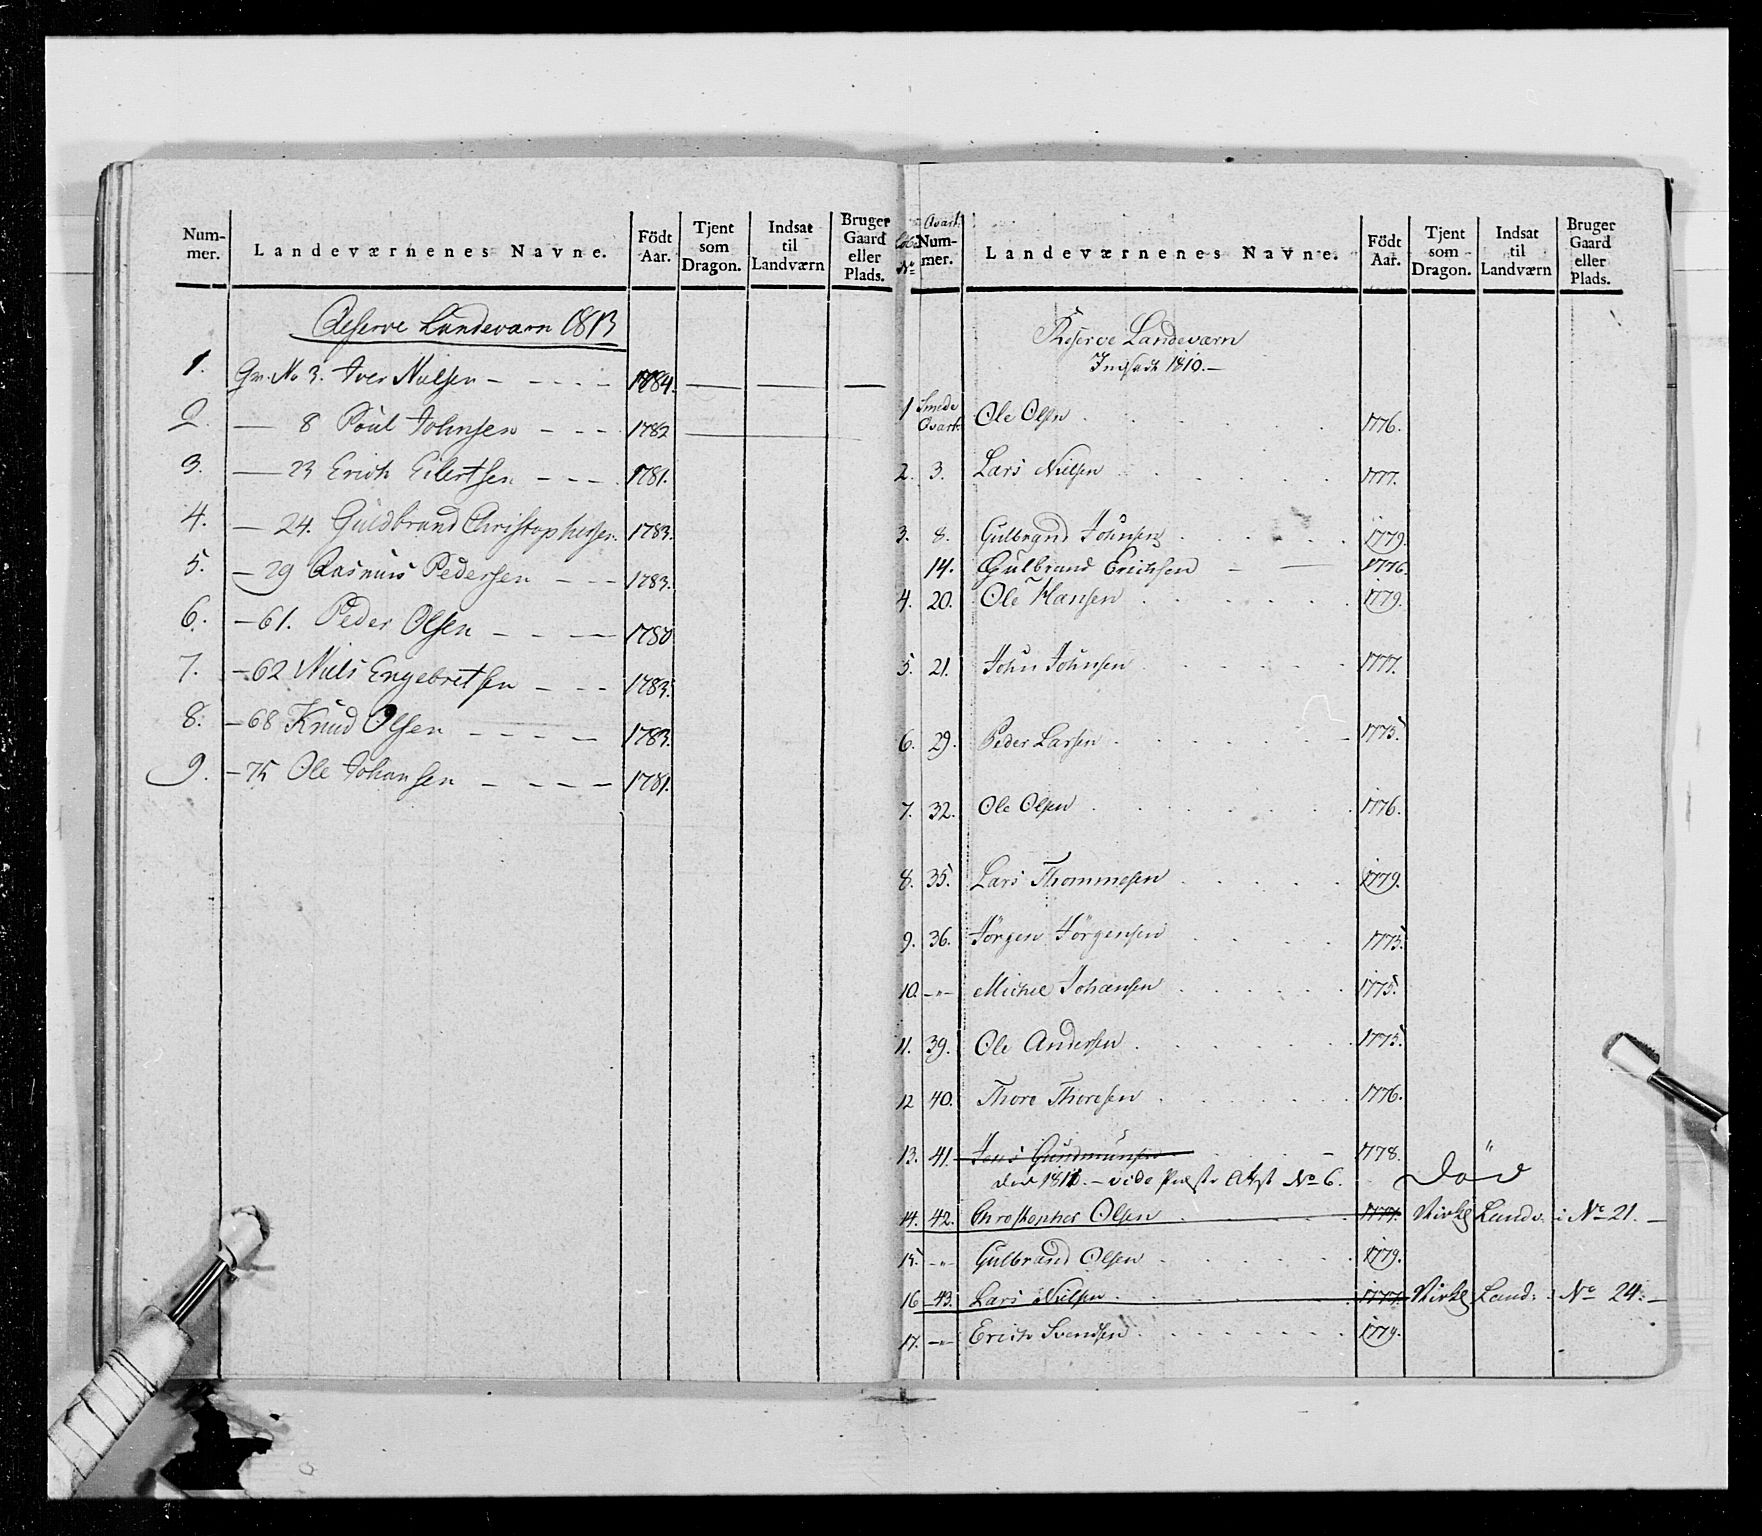 Num-
mer.
Landeværnenes Navne.
Födt
Aar.
Tjent
som
Dragon.
Indsat
til
Landværn
Bruger
Gaard
eller
Plads.
Reserve Landeværn 1813
1. Gv. No 3. Iver Nielsen - - - - - 1784. — — —
2. — 8 Poul Johnsen - - - 1782
3. — 23 Erich Eilertsen - - - 1781.
4. — 24. Guldbrand Christophersen. 1783.
5. — 29 Rasmus Pedersen - - - 1783.
6. — 61. Peder Olsen - - - - 1780
7. — 62 Niels Engebretsen - - - 1783.
8. — 68 Knud Olsen - - - - - 1783.
9. — 75 Ole Johansen - - - - - 1781.
Lób:
No
Qvart:
Num-
mer.
Landeværnenes Navne.
Födt
Aar.
Tjent
som
Dragon.
Indsat
til
Landværn
Bruger
Gaard
eller
Plads.
Reserve Landeværn
Indsadt 1810.—
1 Smede Qvart: Ole Olsen 1776.
2. 3. Lars Nielsen 1777.
3. 8. Gulbrand Johnsen 1779.
14. Gulbrand Erichsen 1776.
4. 20. Ole Hansen 1779.
5. 21. John Johnsen 1777.
6. 29. Peder Larsen 1775.
7. 32. Ole Olsen 1776.
8. 35. Lars Thommesen 1779.
9. 36. Jörgen Jörgensen 1775.
10. —"— Michel Johansen 1775.
11. 39. Ole Andersen 1775.
12 40. Thore Thoresen 1776.
13. 41. Jens Gundmunsen 1778.
död 1811. — vide Præste Atst No 6. Död
14. 42. Christopher Olsen 1777. Virkl Landv. i No 21. —
15. —"— Gulbrand Olsen 1779.
16 43. Lars Nielsen 1777. Virkl Land: i No 24. —
17. —"— Erich Svendsen 1779.